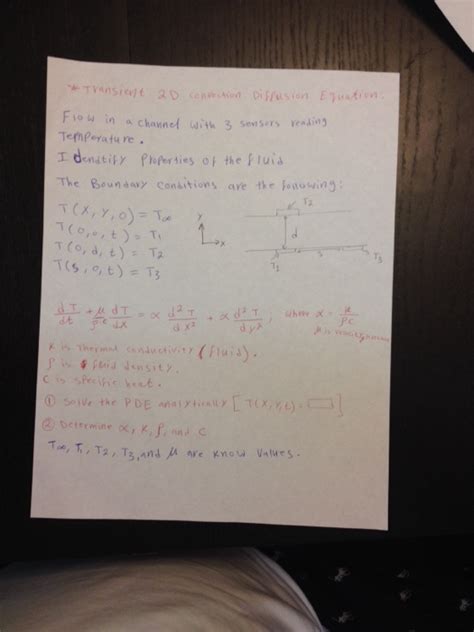 * Transient 2D Convection Diffusion Equation:
Flow in a channel with 3 sensors reading
Temperature.
Idendtify Properties of the fluid
The Boundary Conditions are the following:
T(x,y,0) = T∞
T(0,0,t) = T1
T(0,d,t) = T2
T(s,0,t) = T3
y
x
T2
d
s
T1
T3
dT/dt + μ/ρc dT/dx = α d²T/dx² + α d²T/dy² ; where α = K/ρc
μ is
K is thermal conductivity (fluid).
ρ is fluid density.
C is specific heat.
① Solve the PDE analytically [T(x,y,t) = ]
② Determine α, K, ρ, and C
T∞, T1, T2, T3, and μ are know values.